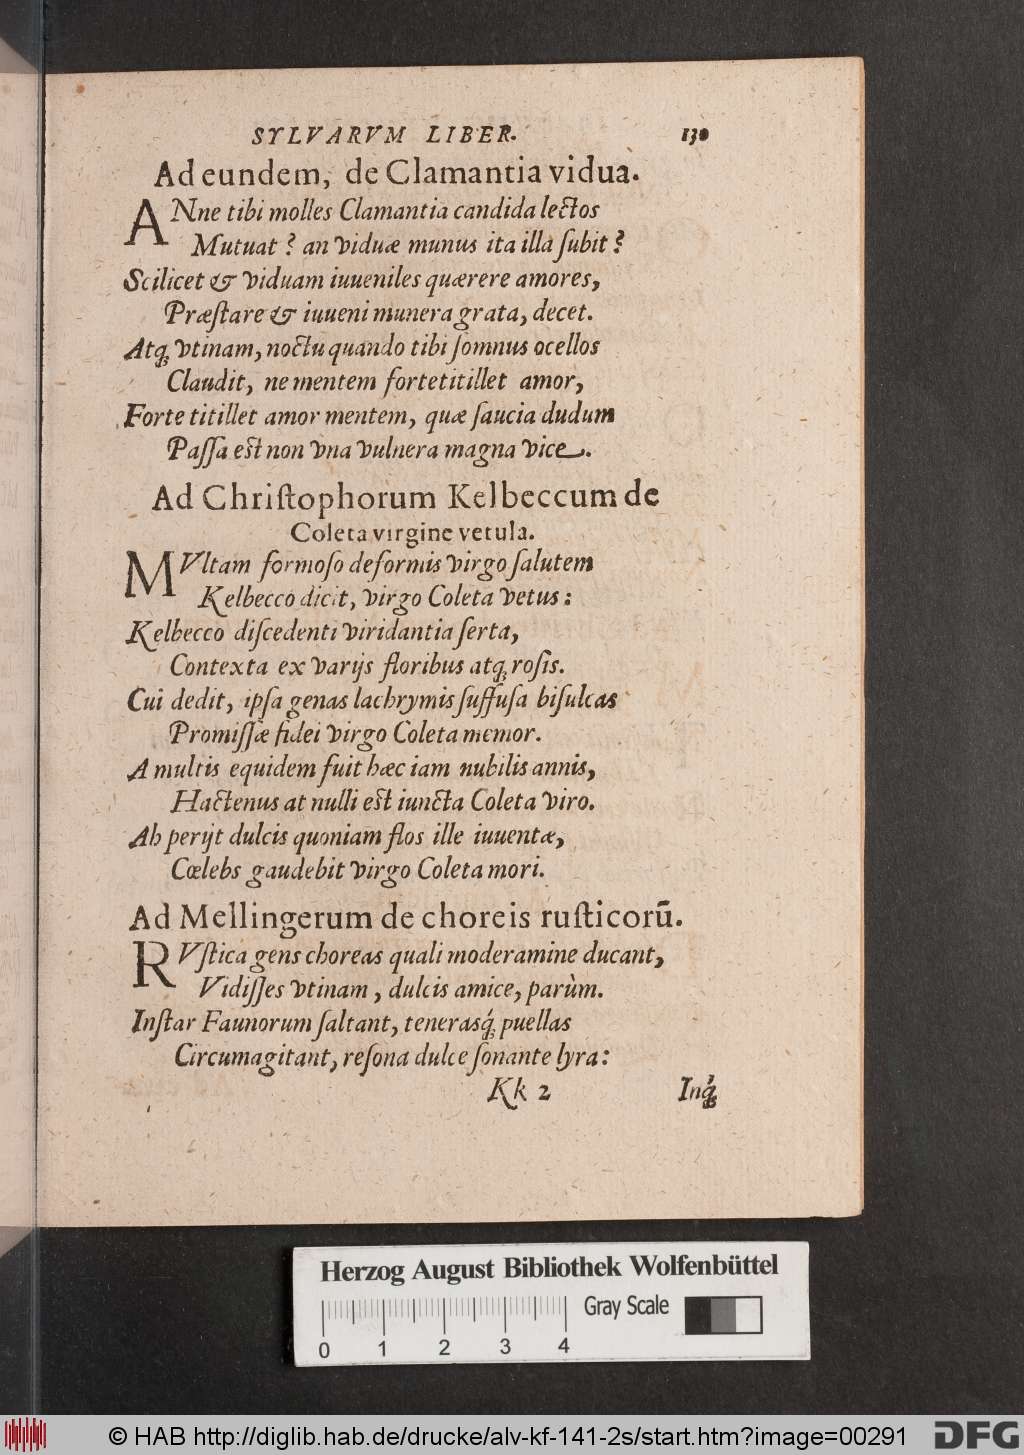 SYLVARVM LIBER. 130
Ad eundem, de Clamantia vidua.
ANne tibi molles Clamantia candida lectos
Mutuat? an viduæ munus ita illa ſubit?
Scilicet & viduam iuueniles quærere amores,
Præſtare & iuueni munera grata, decet.
Atq; vtinam, noctu quando tibi ſomnus ocellos
Claudit, ne mentem forte titillet amor,
Forte titillet amor mentem, quæ ſaucia dudum
Paſſa eſt non vna vulnera magna vice.
Ad Chriſtophorum Kelbeccum de
Coleta virgine vetula.
MVltam formoſo deformis virgo ſalutem
Kelbecco dicit, virgo Coleta vetus:
Kelbecco diſcedenti viridantia ſerta,
Contexta ex varijs floribus atq; roſis.
Cui dedit, ipſa genas lachrymis ſuffuſa biſulcas
Promiſſæ fidei virgo Coleta memor.
A multis equidem fuit hæc iam nubilis annis,
Hactenus at nulli eſt iuncta Coleta viro.
Ah perijt dulcis quoniam flos ille iuuentæ,
Cœlebs gaudebit virgo Coleta mori.
Ad Mellingerum de choreis ruſticorū.
RVſtica gens choreas quali moderamine ducant,
Vidiſſes vtinam, dulcis amice, parùm.
Inſtar Faunorum ſaltant, tenerasq́; puellas
Circumagitant, reſona dulce ſonante lyra:
Kk 2 Inq́;
Herzog August Bibliothek Wolfenbüttel
Gray Scale
0 1 2 3 4
© HAB http://diglib.hab.de/drucke/alv-kf-141-2s/start.htm?image=00291 DFG